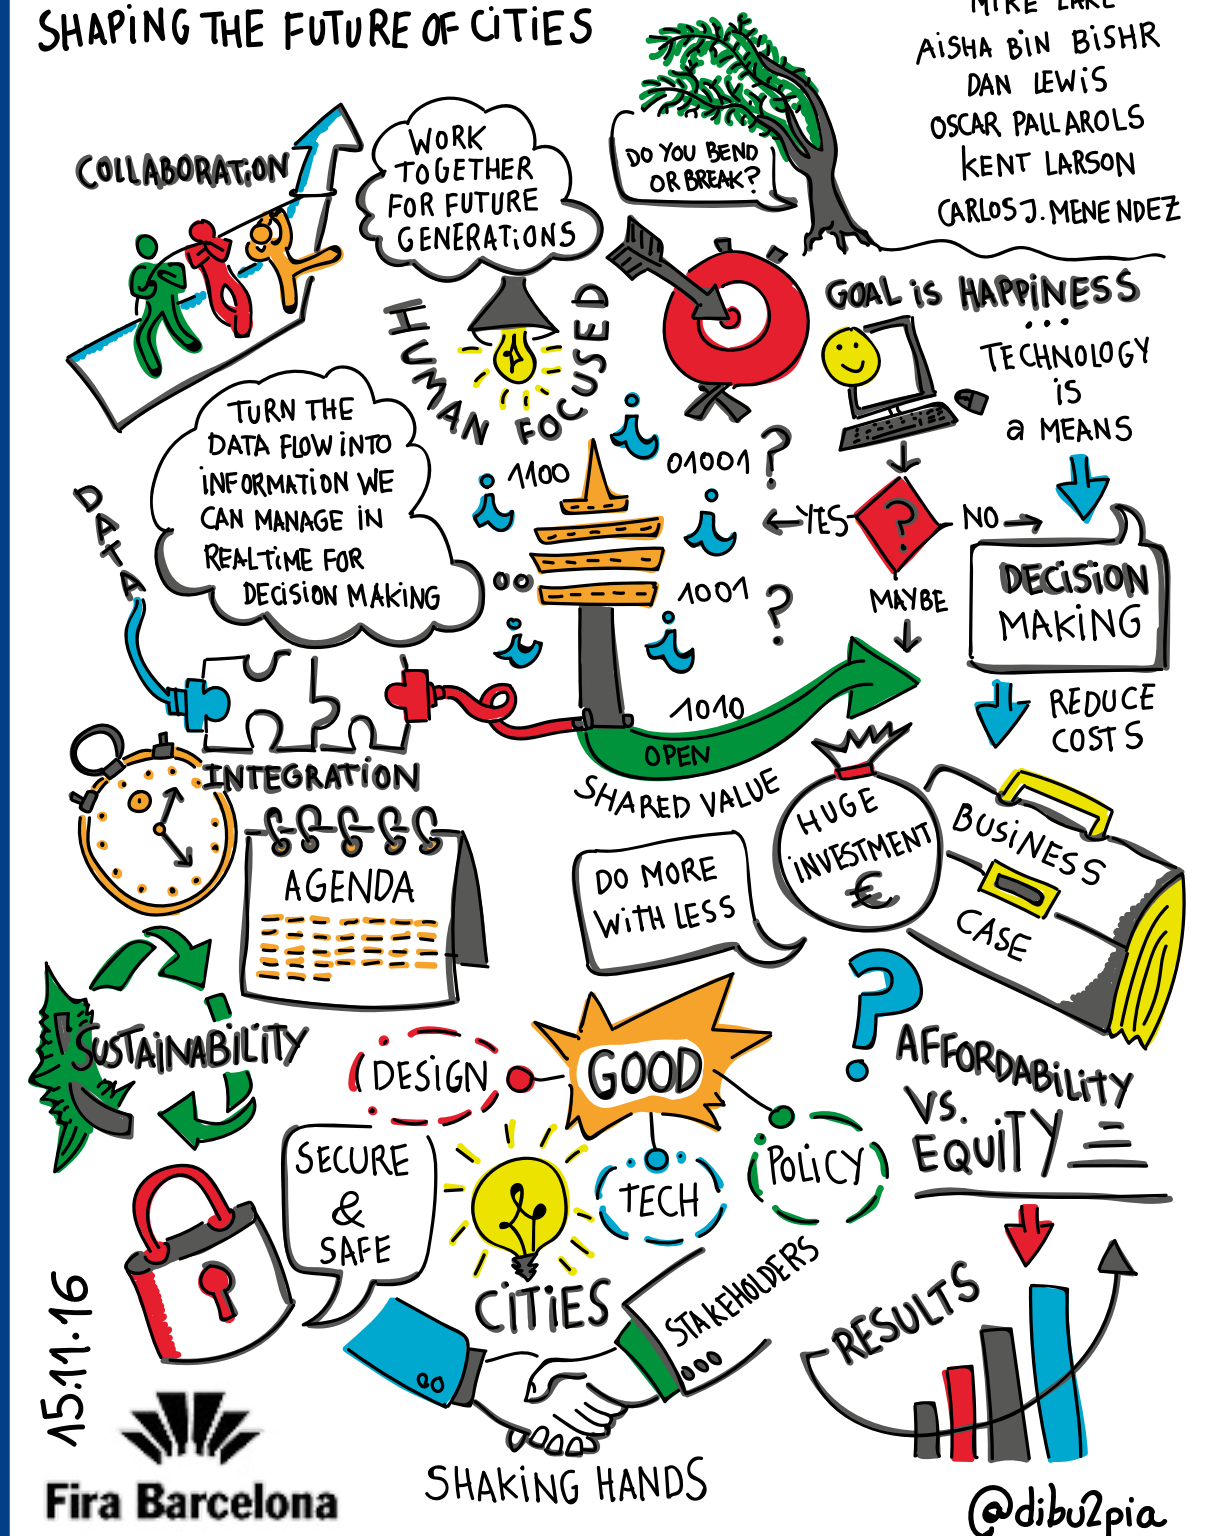 SHAPING THE FUTURE OF CITIES
MIKE LAKE
AISHA BIN BISHR
DAN LEWIS
OSCAR PALLAROLS
KENT LARSON
CARLOS J. MENENDEZ
COLLABORATION
WORK
TOGETHER
FOR FUTURE
GENERATIONS
DO YOU BEND
OR BREAK?
HUMAN FOCUSED
GOAL IS HAPPINESS
...
TECHNOLOGY
IS
a MEANS
TURN THE
DATA FLOW INTO
INFORMATION WE
CAN MANAGE IN
REALTIME FOR
DECISION MAKING
DATA
i
1100
i
01001 ?
i
i
00
1001 ?
i
i
1010
YES
?
NO
MAYBE
DECISION
MAKING
REDUCE
COSTS
INTEGRATION
OPEN
SHARED VALUE
AGENDA
DO MORE
WITH LESS
HUGE
INVESTMENT
€
BUSINESS
CASE
SUSTAINABILITY
DESIGN
GOOD
TECH
POLICY
?
AFFORDABILITY
VS.
EQUITY
SECURE
&
SAFE
CITIES
STAKEHOLDERS
SHAKING HANDS
RESULTS
15.11.16
Fira Barcelona
@dibu2pia